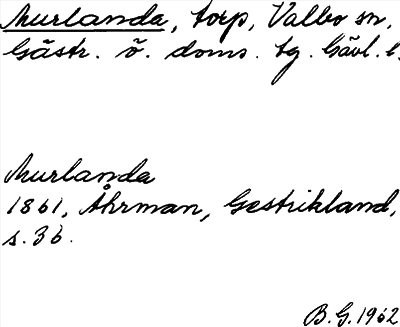 Murlanda, torp, Valbo sn,
Gästr. ö. doms. tg. Gävl. l.
Murlanda
1861, Åhrman, Gestrikland,
s. 36.
B. G. 1962